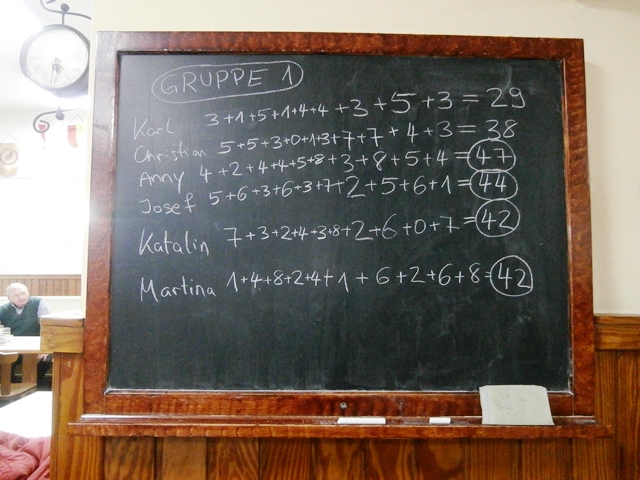 GRUPPE 1
Karl 3+1+5+1+4+4+3+5+3=29
Christian 5+5+3+0+1+3+7+7+4+3=38
Anny 4+2+4+4+5+8+3+8+5+4=47
Josef 5+6+3+6+3+7+2+5+6+1=44
Katalin 7+3+2+4+3+8+2+6+0+7=42
Martina 1+4+8+2+4+1+6+2+6+8=42